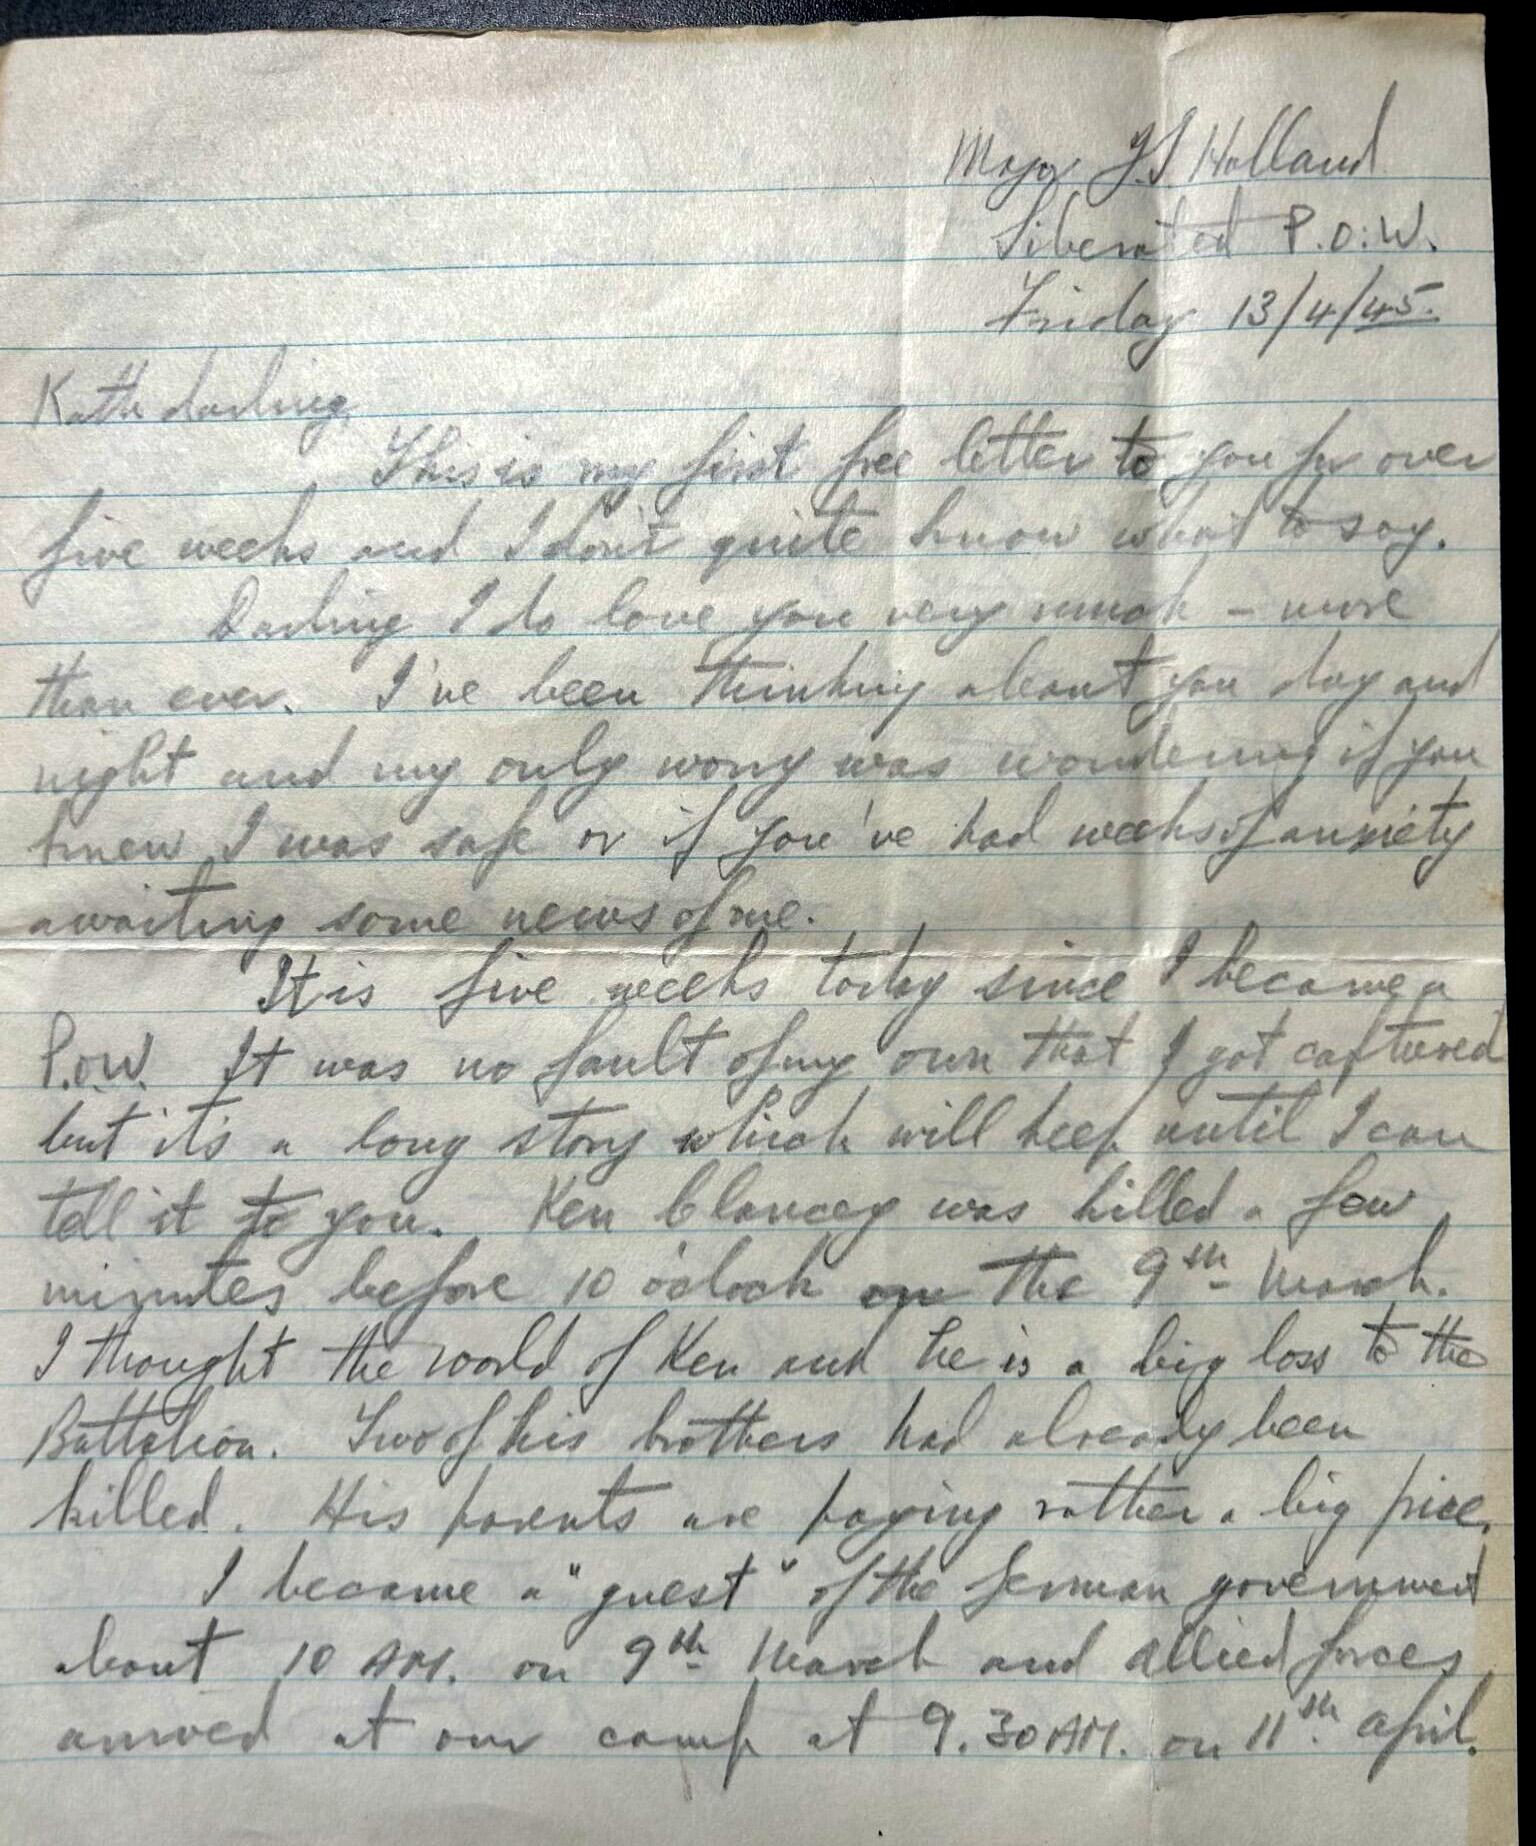 Major J.S. Holland
Liberated P.O.W.
Friday 13/4/45.
Kath darling,
This is my first free letter to you for over
five weeks and I don't quite know what to say.
Darling I do love you very much - more
than ever. I've been thinking about you day and
night and my only worry was wondering if you
knew I was safe or if you've had weeks of anxiety
awaiting some news of me.
It is five weeks today since I became a
P.O.W. It was no fault of my own that I got captured
but it's a long story which will keep until I can
tell it to you. Ken Clancey was killed a few
minutes before 10 o'clock on the 9th March.
I thought the world of Ken and he is a big loss to the
Battalion. Two of his brothers had already been
killed. His parents are paying rather a big price.
I became a "guest" of the German government
about 10 AM. on 9th March and allied forces
arrived at our camp at 9.30 AM. on 11th April.